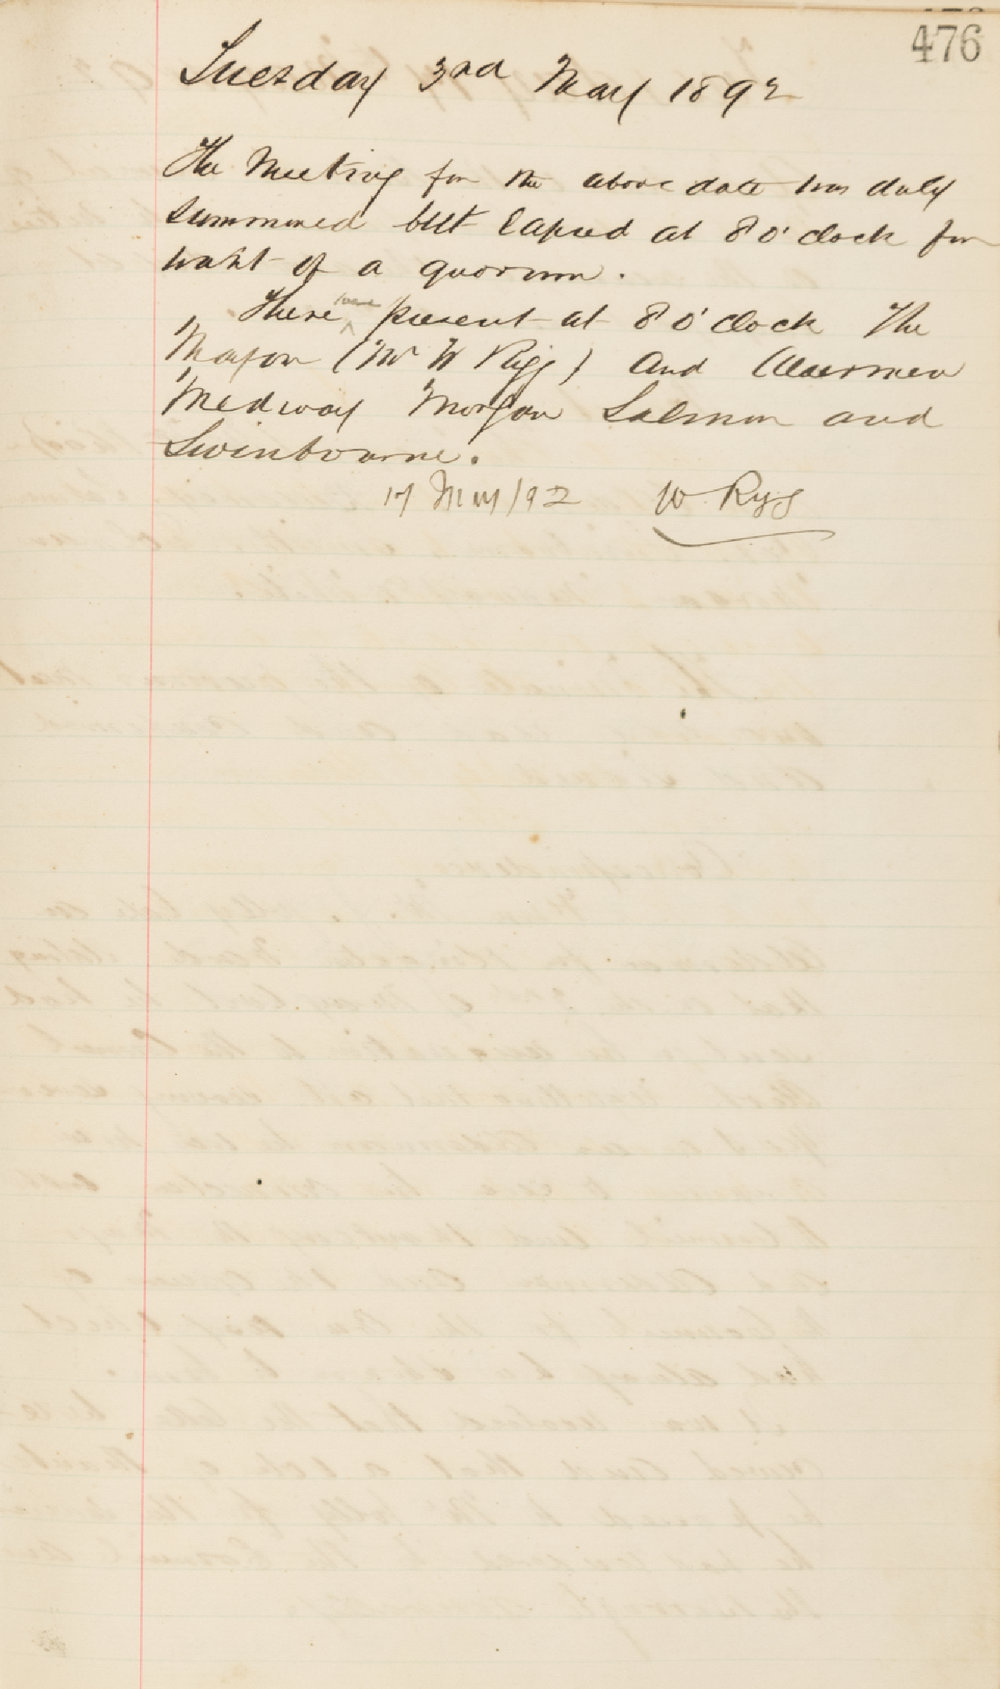 476
Tuesday 3rd May 1892
The Meeting for the above date was duly
summoned but lapsed at 8 o'clock for
want of a quorum.
There were present at 8 o'clock The
Mayor (Mr W Rigg) and Aldermen
Medway Morgan Salmon and
Swinbourne.
17 May/92 W Rigg